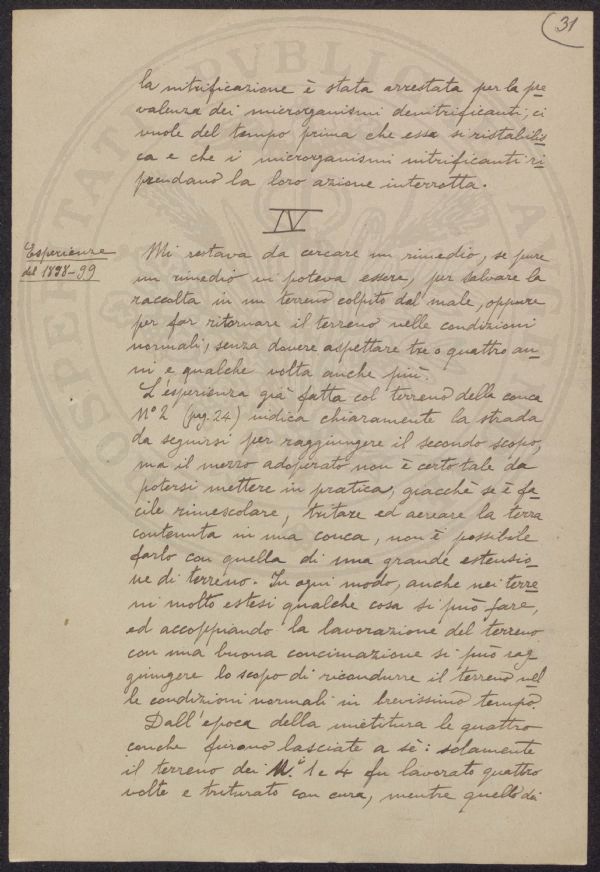 31
la nitrificazione è stata arrestata per la pre
valenza dei microrganismi denitrificanti; ci
vuole del tempo prima che essa si ristabilis
ca e che i microrganismi nitrificanti ri
prendano la loro azione interrotta.
IV
Esperienze
del 1898-99
Mi restava da cercare un rimedio, se pure
un rimedio vi poteva essere, per salvare la
raccolta in un terreno colpito del male, oppure
per far ritornare il terreno nelle condizioni
normali, senza dovere aspettare tre o quattro an-
ni e qualche volta anche più.
L'esperienza già fatta col terreno della conca
N° 2 (pag. 24) indica chiaramente la strada
da seguirsi per raggiungere il secondo scopo,
ma il mezzo adoperato non è certo tale da
potersi mettere in pratica, giacchè se è fa-
cile rimescolare, tritare ed aereare la terra
contenuta in una conca, non è possibile
farlo con quella di una grande estensio-
ne di terreno. In ogni modo, anche nei terre-
ni molto estesi qualche cosa si può fare,
ed accoppiando la lavorazione del terreno
con una buona concimazione si può rag-
giungere lo scopo di ricondurre il terreno nel
le condizioni normali in brevissimo tempo.
Dall'epoca della mietitura le quattro
conche furono lasciate a sè: solamente
il terreno dei N.i 1 e 4 fu lavorato quattro
volte e triturato con cura, mentre quello dei